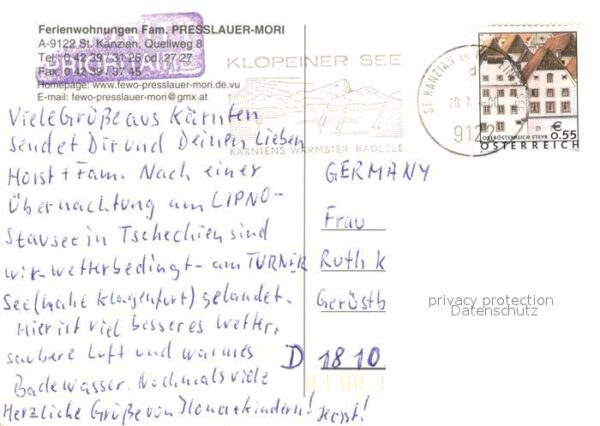 Ferienwohnungen Fam. PRESSLAUER-MORI
A-9122 St. Kanzian, Quellweg 8
Tel: 0 42 39 / 31 25 od. 27 27
Fax: 0 42 39 / 37 45
Homepage: www.fewo-presslauer-mori.de.vu
E-mail: fewo-presslauer-mori@gmx.at
KLOPEINER SEE
KÄRNTENS WÄRMSTER BADESEE
ST. KANZIAN AM
9122
€ 0.55
OBERÖSTERREICH STEYR
ÖSTERREICH
Viele Grüße aus Kärnten
sendet Dir und Deinen lieben
Horst + Fam. Nach einer
Übernachtung am LIPNO-
Stausee in Tschechien sind
wir wetterbedingt - am TURNER
See (nahe Klagenfurt) gelandet.
Hier ist viel besseres Wetter,
saubere Luft und warmes
Badewasser. Nochmals viele
Herzliche Grüße von Ilona + Kindern! Horst!
GERMANY
Frau
Ruth K
Gerüstb
D 1810
privacy protection
Datenschutz